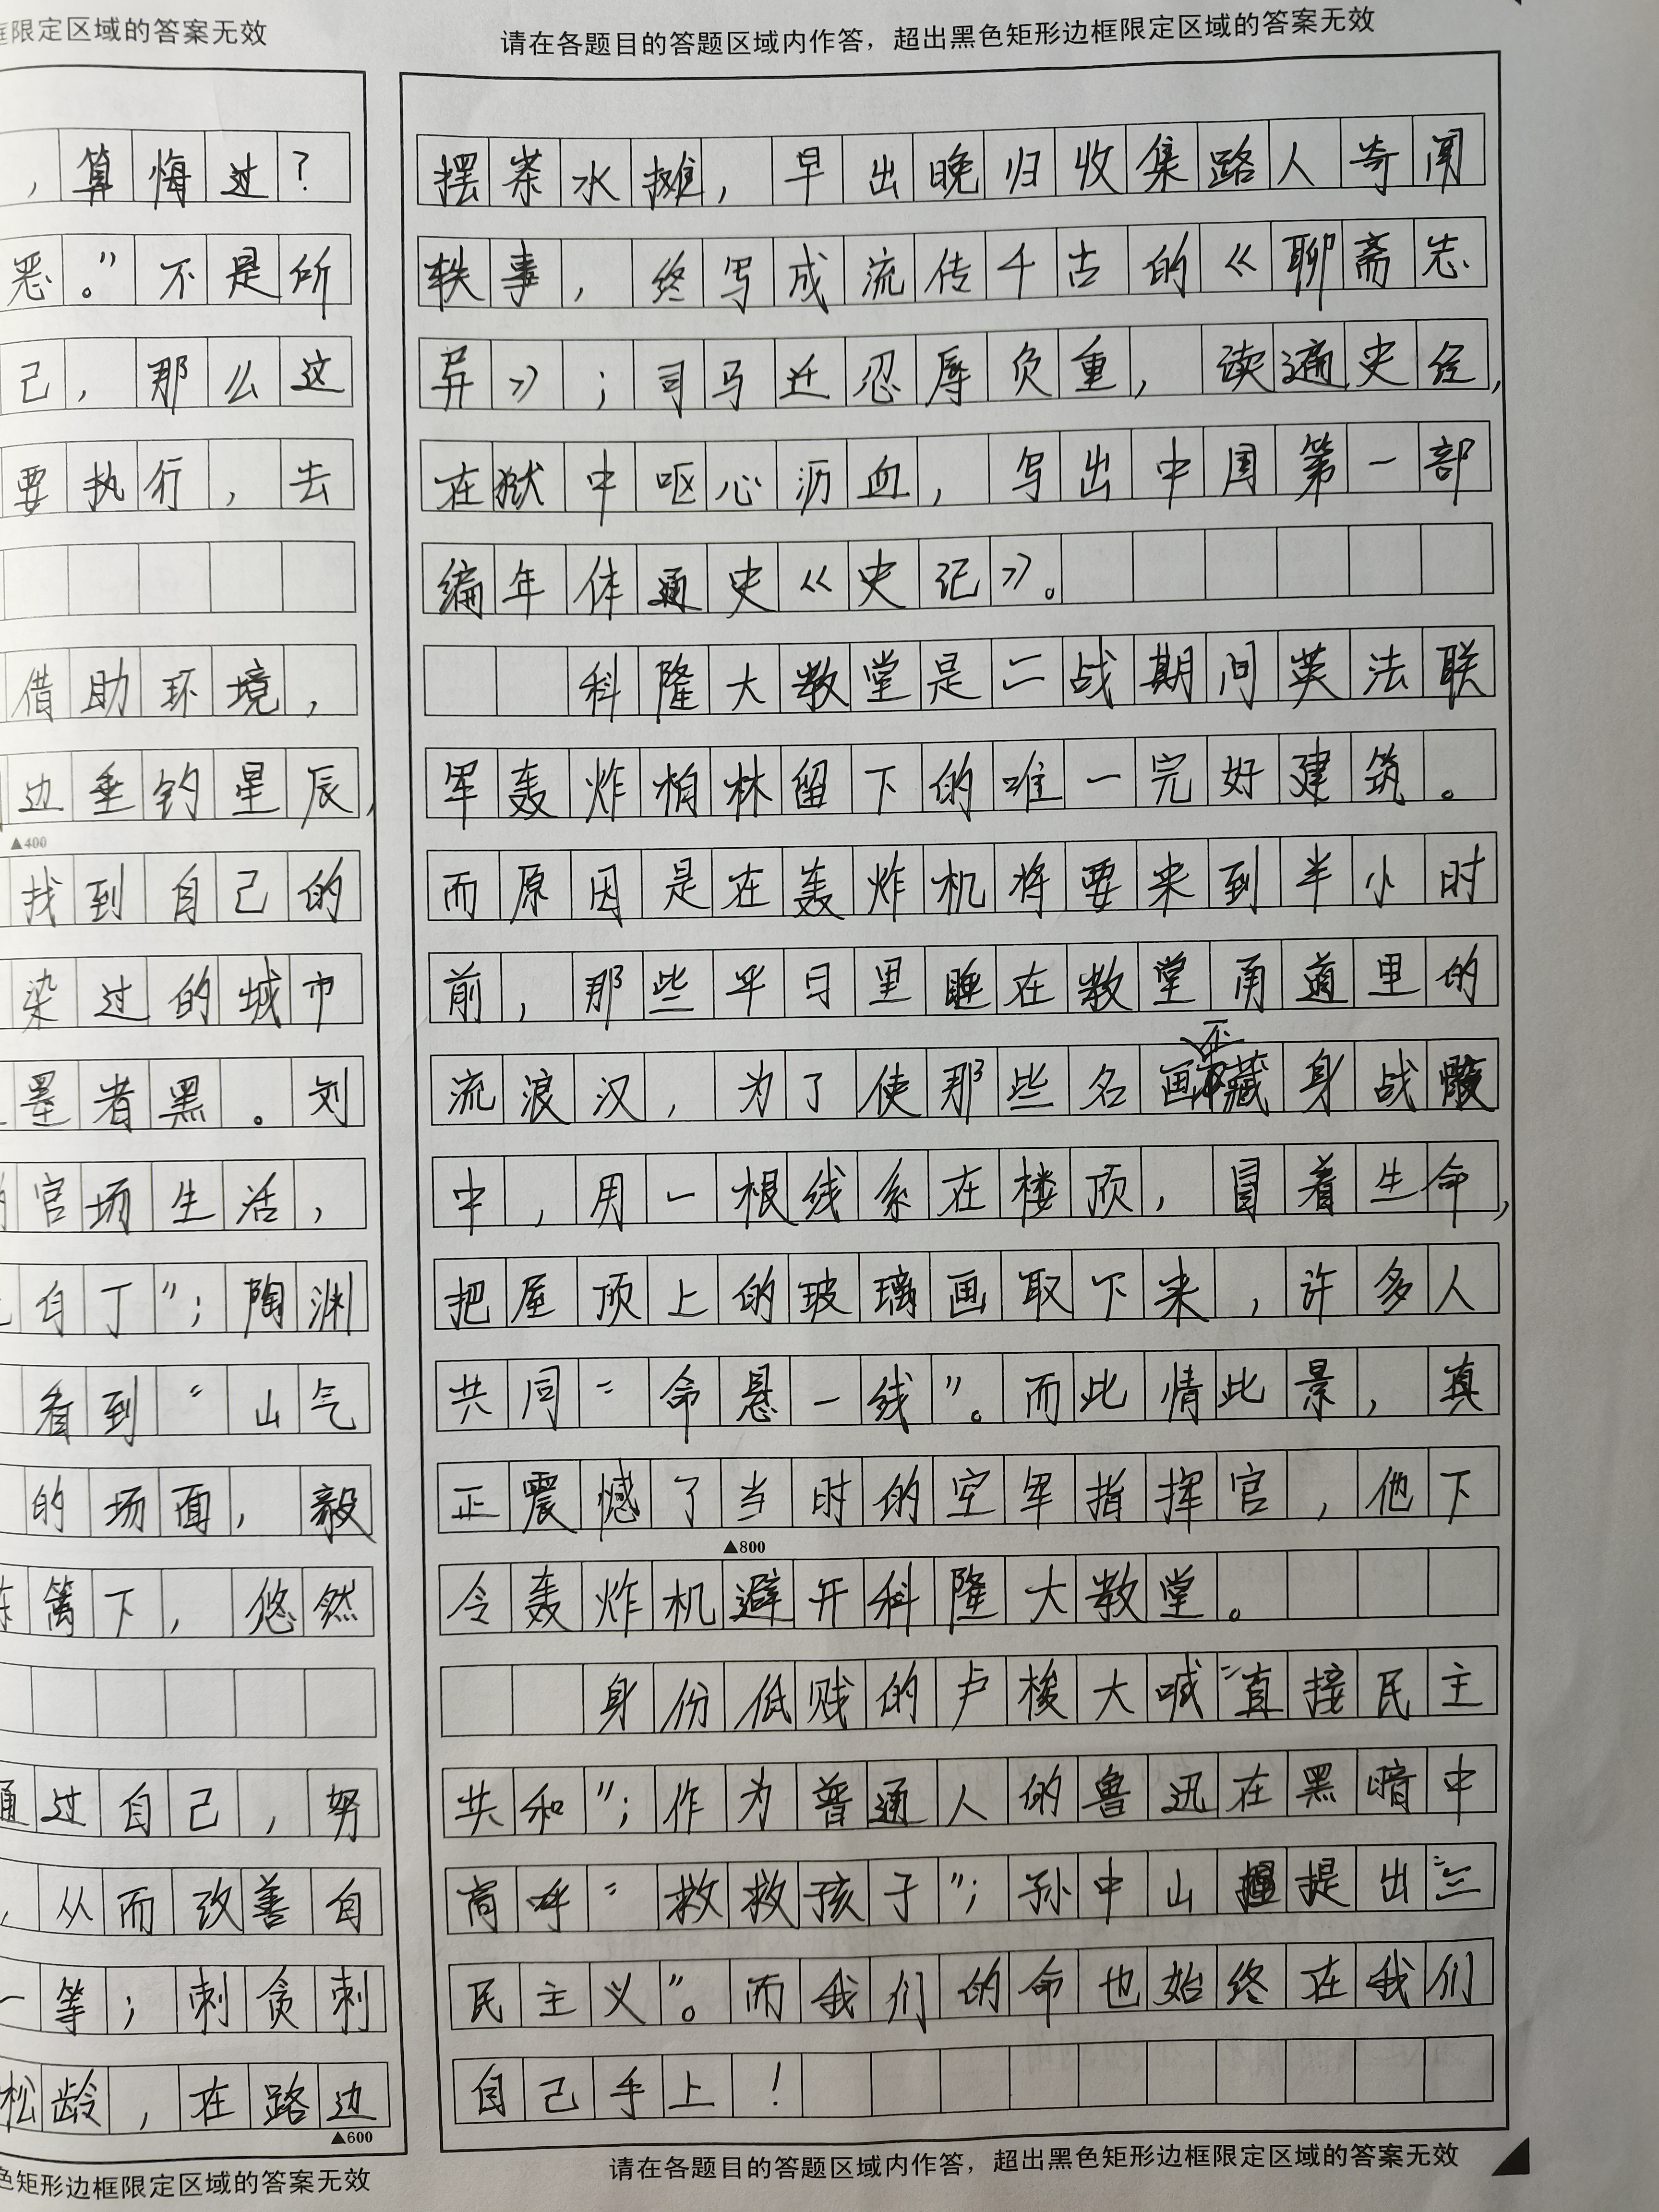 框限定区域的答案无效
，算悔过？
恶。”不是所
己，那么这
要执行，去
借助环境，
边垂钓星辰，
▲400
找到自己的
染过的城市
墨者黑。刘
官场生活，
白丁”；陶渊
看到“山气
的场面，毅
篱下，悠然
通过自己，努
，从而改善自
一等；刺贪刺
松龄，在路边
▲600
色矩形边框限定区域的答案无效
请在各题目的答题区域内作答，超出黑色矩形边框限定区域的答案无效
摆茶水摊，早出晚归收集路人奇闻
轶事，终写成流传千古的《聊斋志
异》；司马迁忍辱负重，读通史经，
在狱中呕心沥血，写出中国第一部
编年体通史《史记》。
科隆大教堂是二战期间英法联
军轰炸柏林留下的唯一完好建筑。
而原因是在轰炸机将要来到半小时
前，那些平日里睡在教堂甬道里的
流浪汉，为了使那些名画不藏身战
中，用一根线系在楼顶，冒着生命，
把屋顶上的玻璃画取下来，许多人
共同“命悬一线”。而此情此景，真
正震憾了当时的空军指挥官，他下
▲800
令轰炸机避开科隆大教堂。
身份低贱的卢梭大喊“直接民主
共和”；作为普通人的鲁迅在黑暗中
高呼“救救孩子”；孙中山提出“三
民主义”。而我们的命也始终在我们
自己手上！
请在各题目的答题区域内作答，超出黑色矩形边框限定区域的答案无效